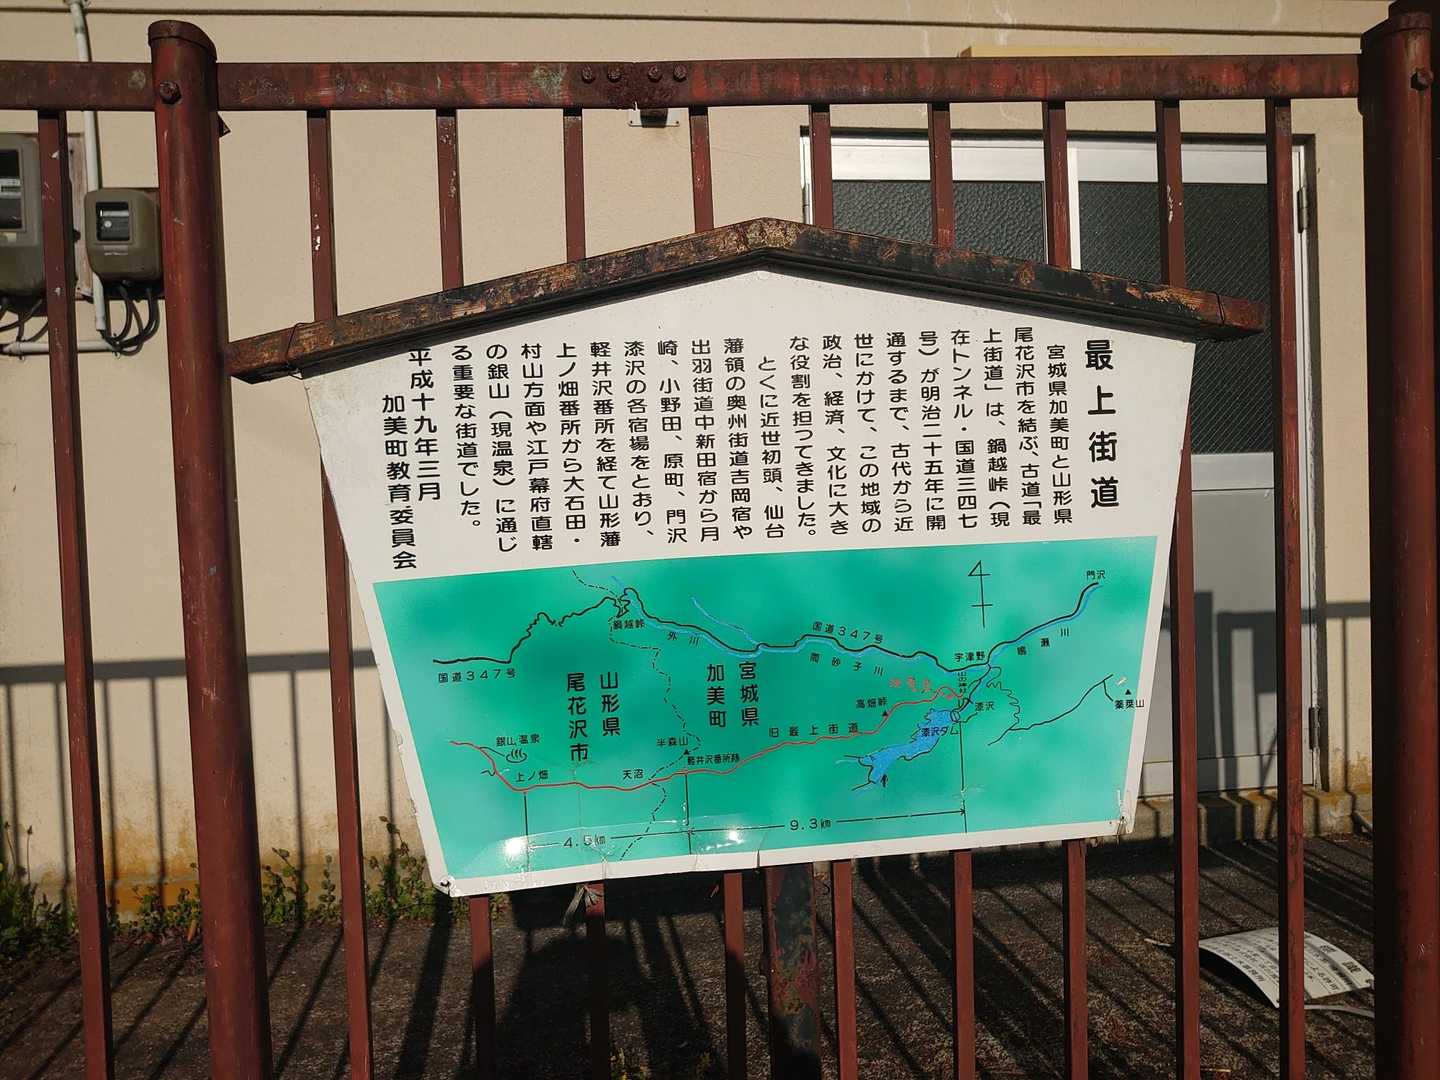 最上街道
宮城県加美町と山形県
尾花沢市を結ぶ、古道「最
上街道」は、鍋越峠（現
在トンネル・国道三四七
号）が明治二十五年に開
通するまで、古代から近
世にかけて、この地域の
政治、経済、文化に大き
な役割を担ってきました。
とくに近世初頭、仙台
藩領の奥州街道吉岡宿や
出羽街道中新田宿から月
崎、小野田、原町、門沢
漆沢の各宿場をとおり、
軽井沢番所を経て山形藩
上ノ畑番所から大石田・
村山方面や江戸幕府直轄
の銀山（現温泉）に通じ
る重要な街道でした。
平成十九年三月
加美町教育委員会
門沢
4
鍋越峠
外川
国道347号
宇津野
鳴瀬川
国道347号
山形県
尾花沢市
宮城県
加美町
高畑峠
漆沢
薬莱山
漆沢ダム
旧最上街道
銀山温泉
半森山
軽井沢番所跡
上ノ畑
天沼
4.5km
9.3km